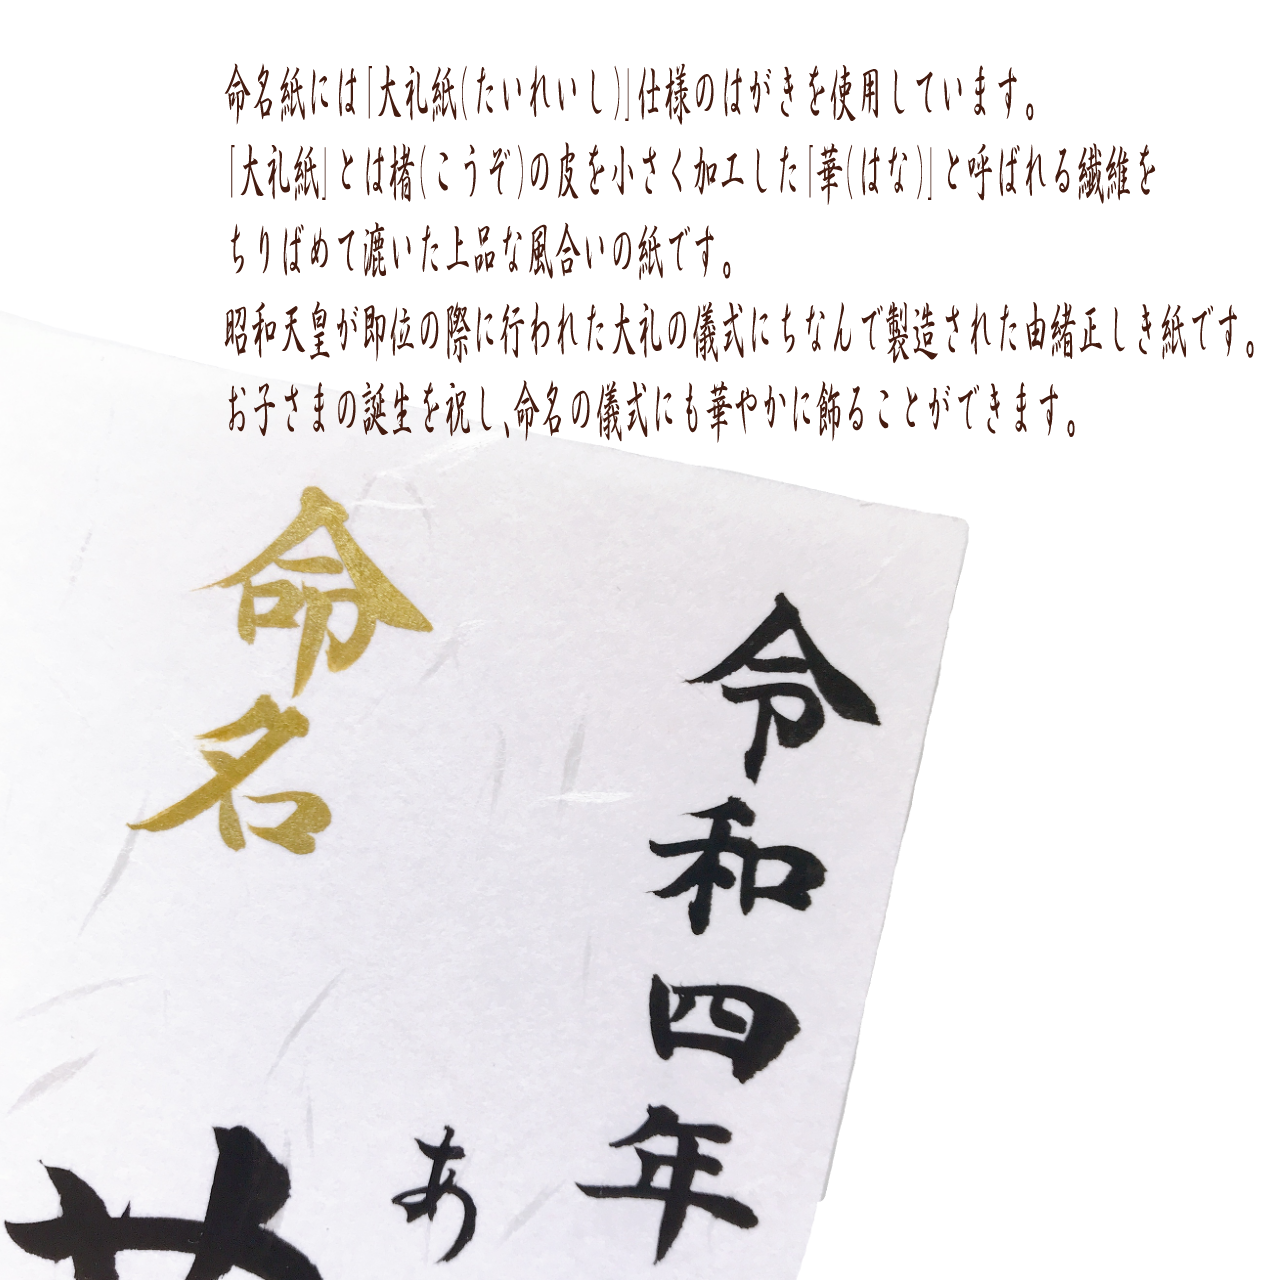 命名紙には「大礼紙(たいれいし)」仕様のはがきを使用しています。
「大礼紙」とは楮(こうぞ)の皮を小さく加工した「華(はな)」と呼ばれる繊維を
ちりばめて漉いた上品な風合いの紙です。
昭和天皇が即位の際に行われた大礼の儀式にちなんで製造された由緒正しき紙です。
お子さまの誕生を祝し、命名の儀式にも華やかに飾ることができます。
令和四年
命名
あ